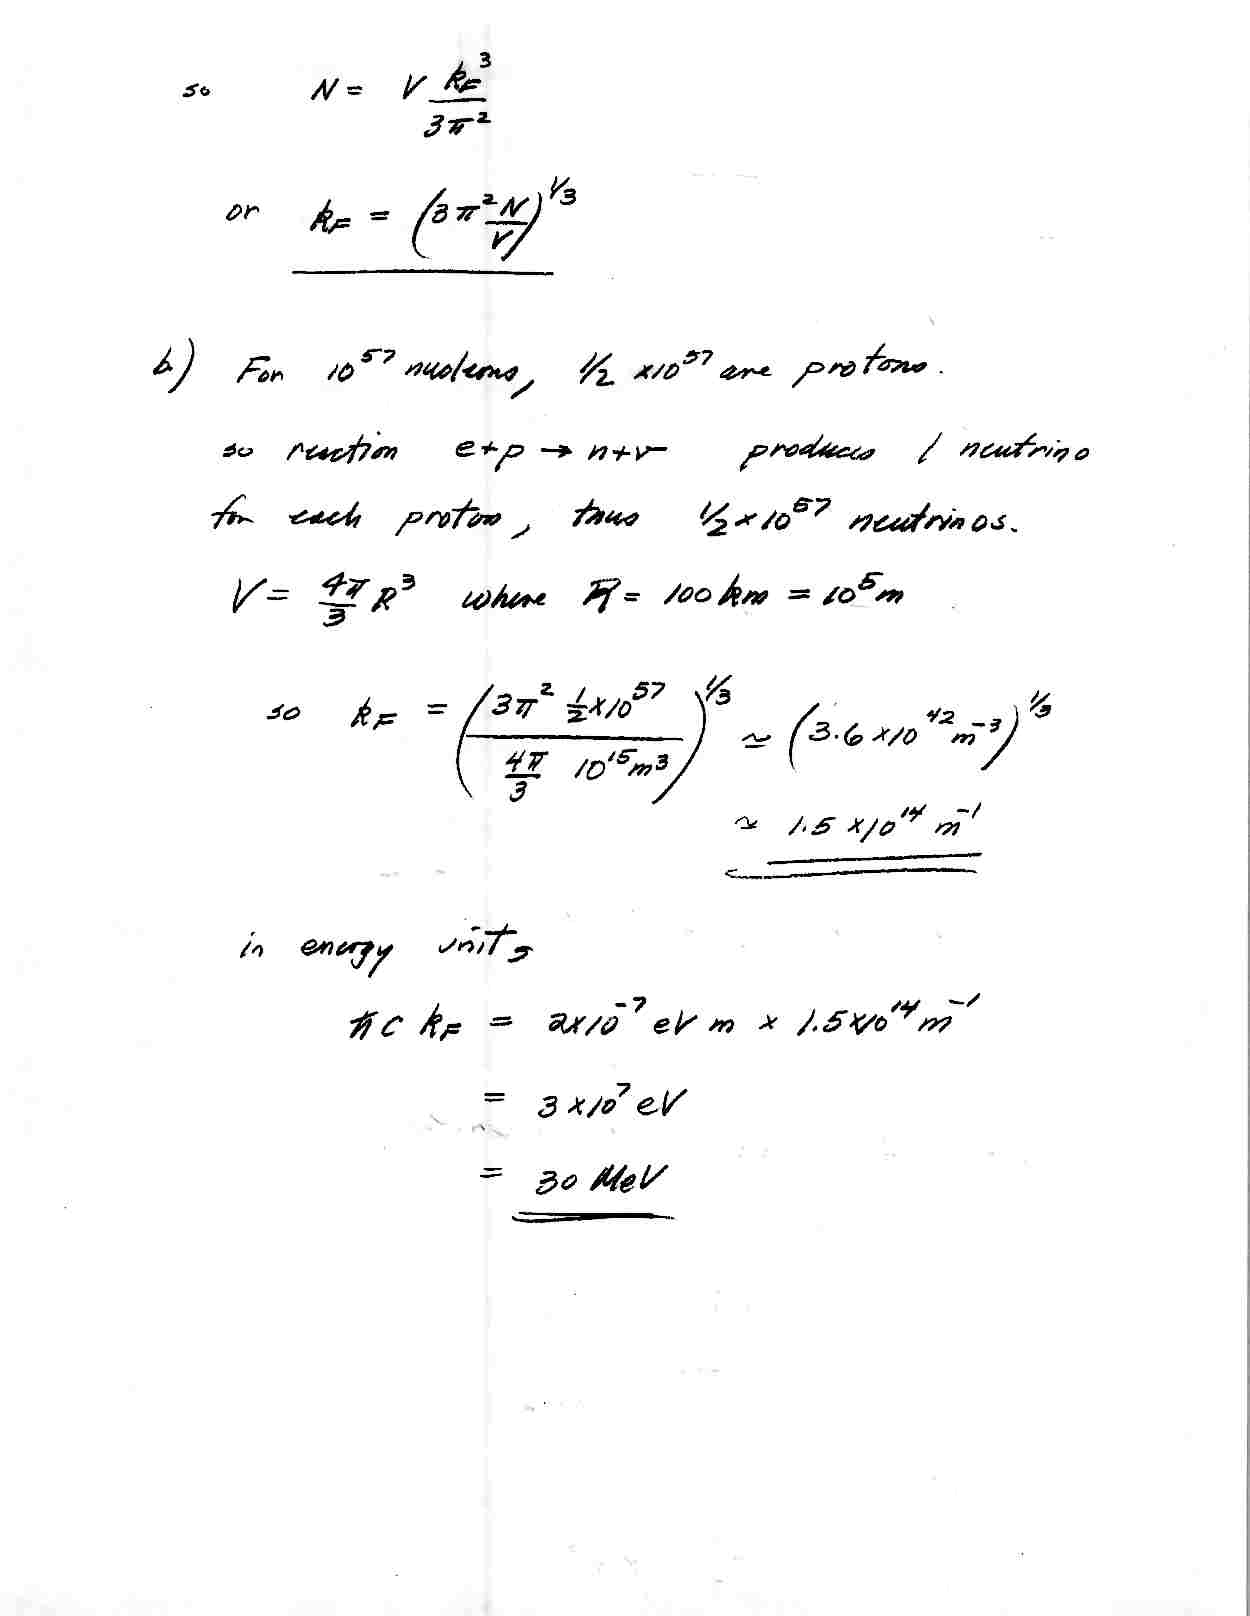 so N = V k_F^3 / 3π^2
or k_F = (3π^2 N/V)^1/3
b) For 10^57 nucleons, 1/2 ×10^57 are protons.
so reaction e+p → n+ν produces 1 neutrino
for each proton, thus 1/2 × 10^57 neutrinos.
V = 4π/3 R^3 where R = 100 km = 10^5 m
so k_F = (3π^2 1/2 ×10^57 / 4π/3 10^15 m^3)^1/3 ≃ (3.6 ×10^42 m^-3)^1/3
≃ 1.5 ×10^14 m^-1
in energy units
ħ c k_F = 2×10^-7 eV m × 1.5×10^14 m^-1
= 3 ×10^7 eV
= 30 MeV